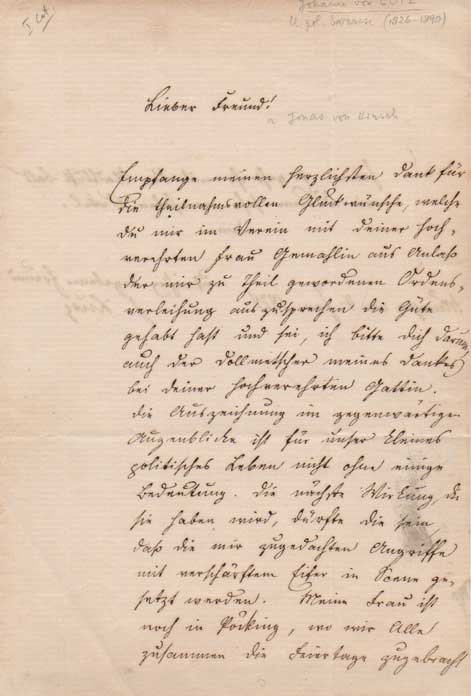 I Cat
Johann von Lutz
(1826-1890)
Lieber Freund!
a Jonas von Kiesch
Empfange meinen herzlichsten Dank für
die theilnahmsvollen Glückwünsche, welche
Du mir im Verein mit Deiner hoch-
verehrten Frau Gemahlin aus Anlaß
der mir zu Theil gewordenen Ordens-
verleihung auszusprechen die Güte
gehabt hast und sei, ich bitte Dich darum,
auch der Dollmetscher meines Dankes
bei Deiner hochverehrten Gattin.
Die Auszeichnung im gegenwärtigen
Augenblicke ist für unser kleines
politisches Leben nicht ohne einige
Bedeutung. Die nächste Wirkung, die
sie haben wird, dürfte die sein,
daß die mir zugedachten Angriffe
mit verschärftem Eifer in Scene ge-
setzt werden. Meine Frau ist
noch in Pöcking, wo wir Alle
zusammen die Feiertage zugebracht